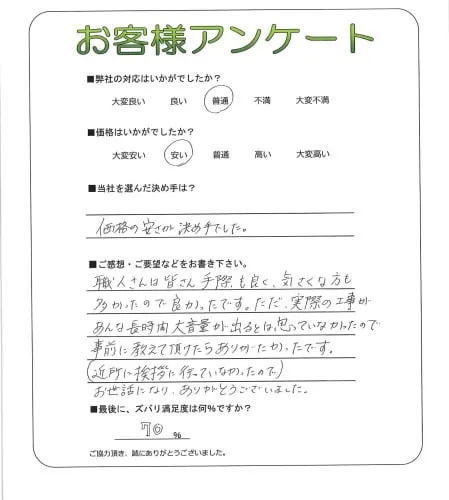 お客様アンケート
■弊社の対応はいかがでしたか？
大変良い 良い 普通 不満 大変不満
■価格はいかがでしたか？
大変安い 安い 普通 高い 大変高い
■当社を選んだ決め手は？
価格の安さが決め手でした。
■ご感想・ご要望などをお書き下さい。
職人さんは皆さん手際も良く、気さくな方も
多かったので良かったです。ただ、実際の工事が
あんな長時間大音量が出るとは思っていなかったので
事前に教えて頂けたらありがたかったです。
(近所に挨拶に行っていなかったので)
お世話になり、ありがとうございました。
■最後に、ズバリ満足度は何%ですか？
70 %
ご協力頂き、誠にありがとうございました。